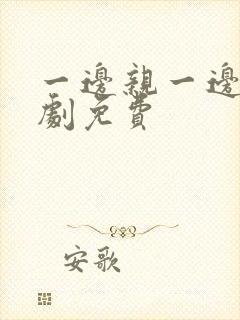 一邊親一邊
劇免費
安歌